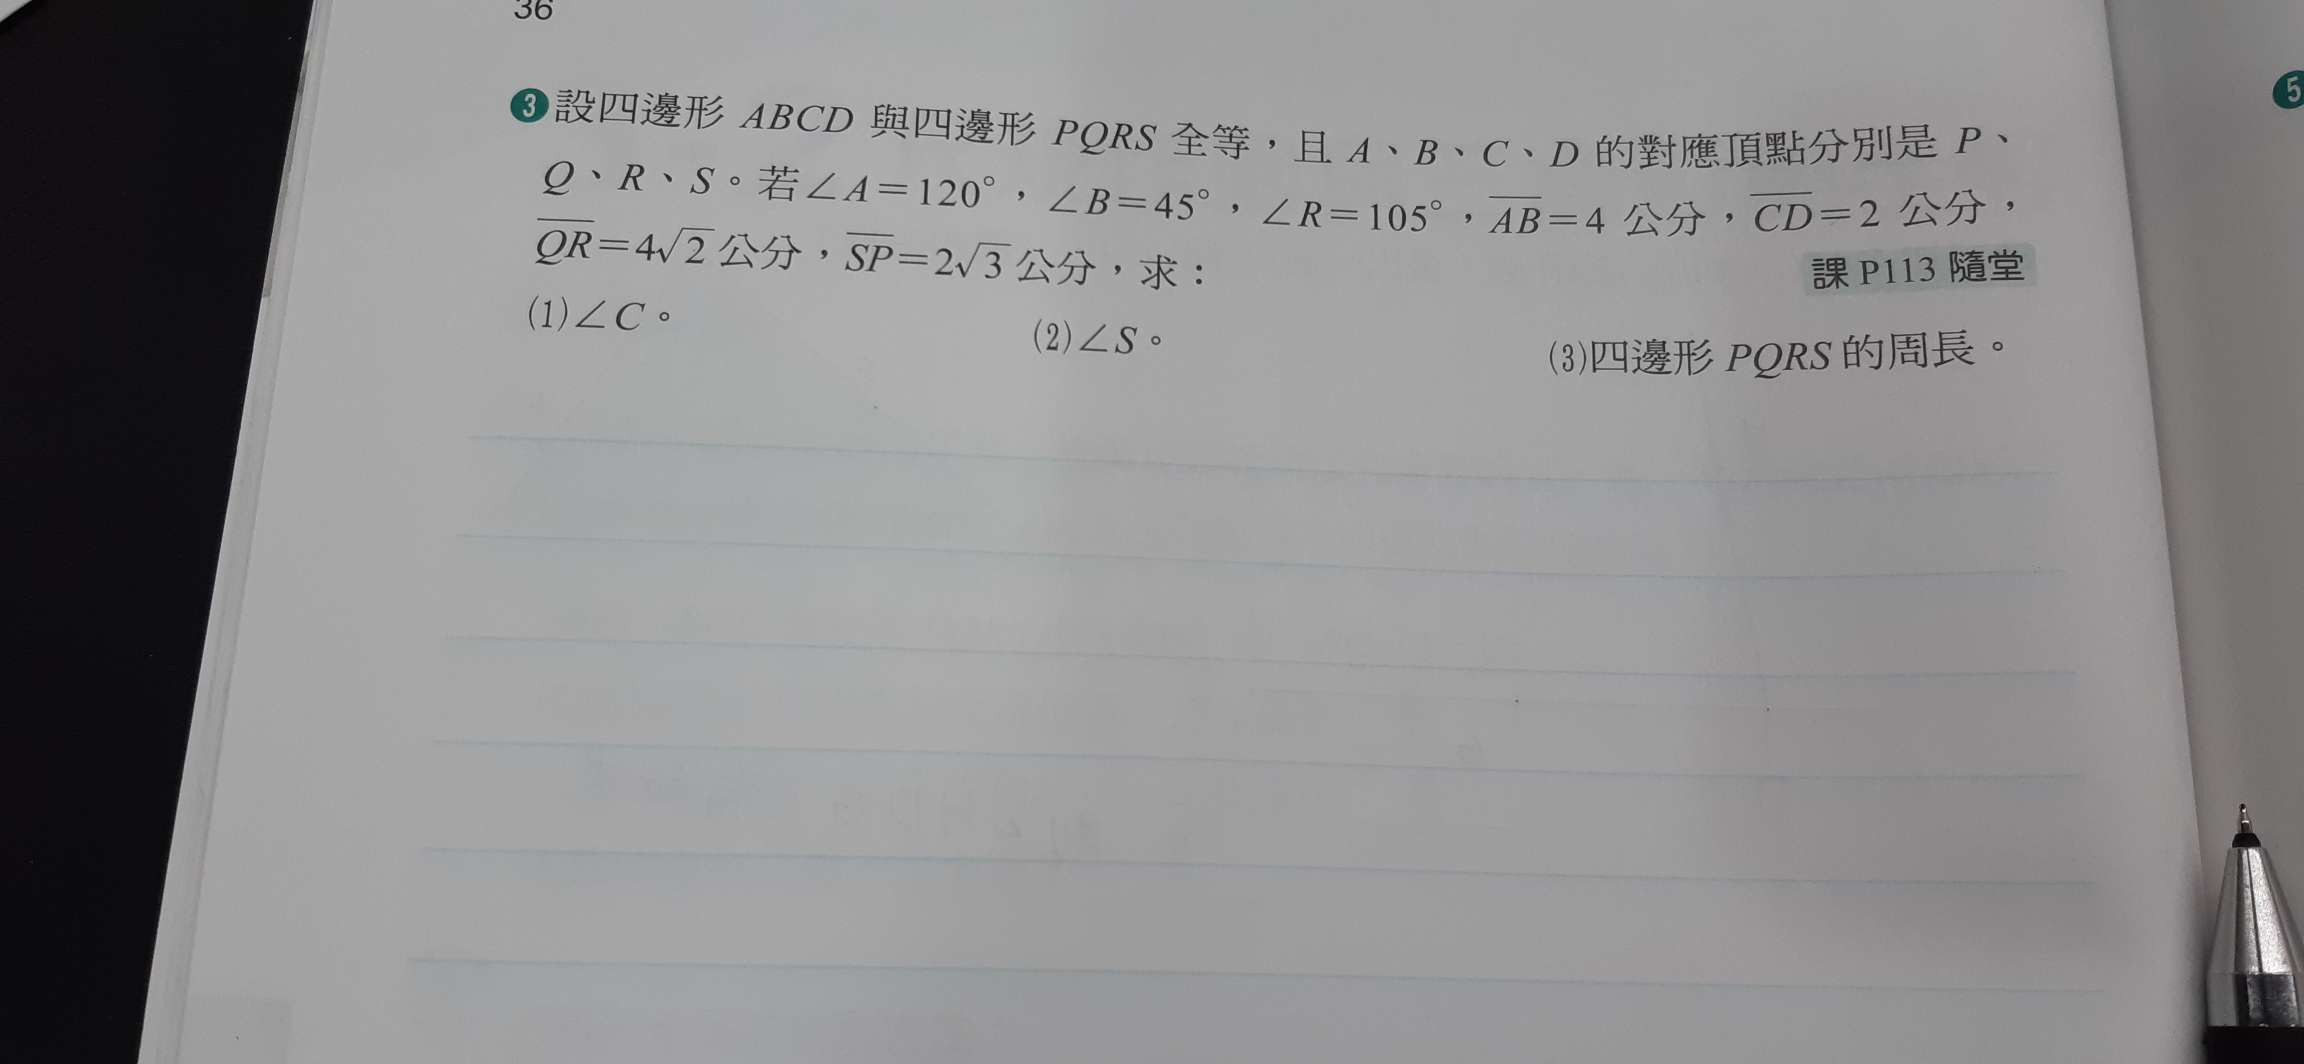 36
❸設四邊形 ABCD 與四邊形 PQRS 全等，且 A、B、C、D 的對應頂點分別是 P、
Q、R、S。若∠A=120°，∠B=45°，∠R=105°，\overline{AB}=4 公分，\overline{CD}=2 公分，
\overline{QR}=4√2 公分，\overline{SP}=2√3 公分，求：
課 P113 隨堂
(1)∠C。 (2)∠S。 (3)四邊形 PQRS 的周長。
5